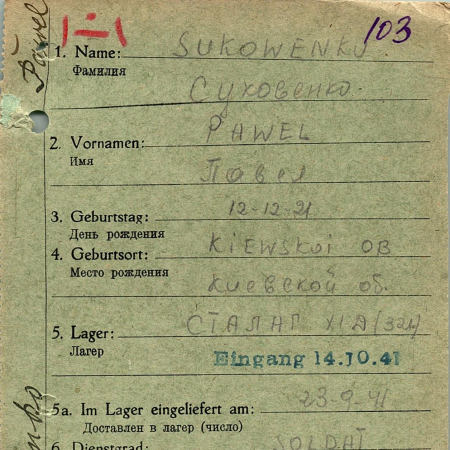 Pawel
1-1
103
1. Name: SUKOWENKO
Фамилия
Суховенко
2. Vornamen: PAWEL
Имя
Павел
3. Geburtstag: 12-12-21
День рождения
4. Geburtsort: KIEWSKOI OB
Место рождения
Киевской об.
5. Lager: СТАЛАГ XI D (321)
Лагер
Eingang 14.10.41
5a. Im Lager eingeliefert am: 23-9-41
Доставлен в лагер (число)
6. Dienstgrad: SOLDAT